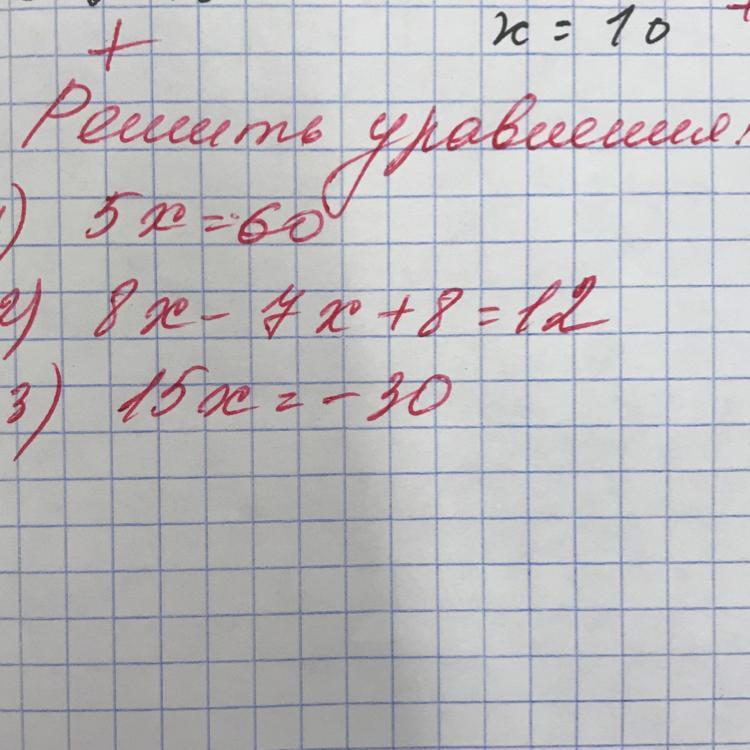 x = 10
+
Решить уравнения:
1) 5x = 60
2) 8x - 7x + 8 = 12
3) 15x = - 30